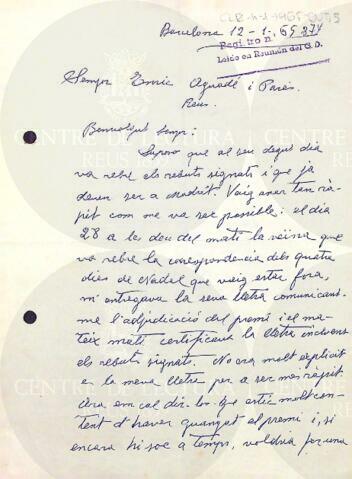 Barcelona 12-1-65
Registro n. 274
Leido en Reunión del C.D.
Senyor Enric Aguadé i Parés.
Reus.
Benvolgut Senyor:
Suposo que al seu degut dia
va rebre els rebuts signats i que ja
deuen ser a Madrid. Vaig anar tan rà-
pit com me va ser possible: el dia
28 a les deu del matí la veïna que
va rebre la correspondencia dels quatre
dies de Nadal que vaig estar fora,
m'entregava la seva lletra comunicant-
me l'adjudicació del premi i el ma-
teix matí certificava la lletra incloent
els rebuts signats. No era molt explicit
a la meva lletra per a ser mes ràpit
Ara em cal dir-los que estic molt con-
tent d'haver guanyat el premi i, si
encara hi soc a temps, voldria per una
CENTRE DE LECTURA
REUS 1859